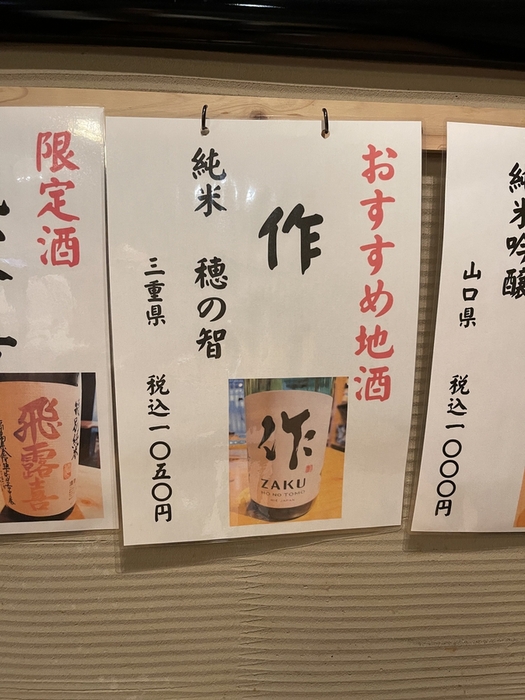 おすすめ地酒
作
純米 穂の智
三重県 税込一〇五〇円
作
ZAKU
HO NO TOMO
限定酒
飛露喜
特別純米
純米吟醸
山口県 税込一〇〇〇円